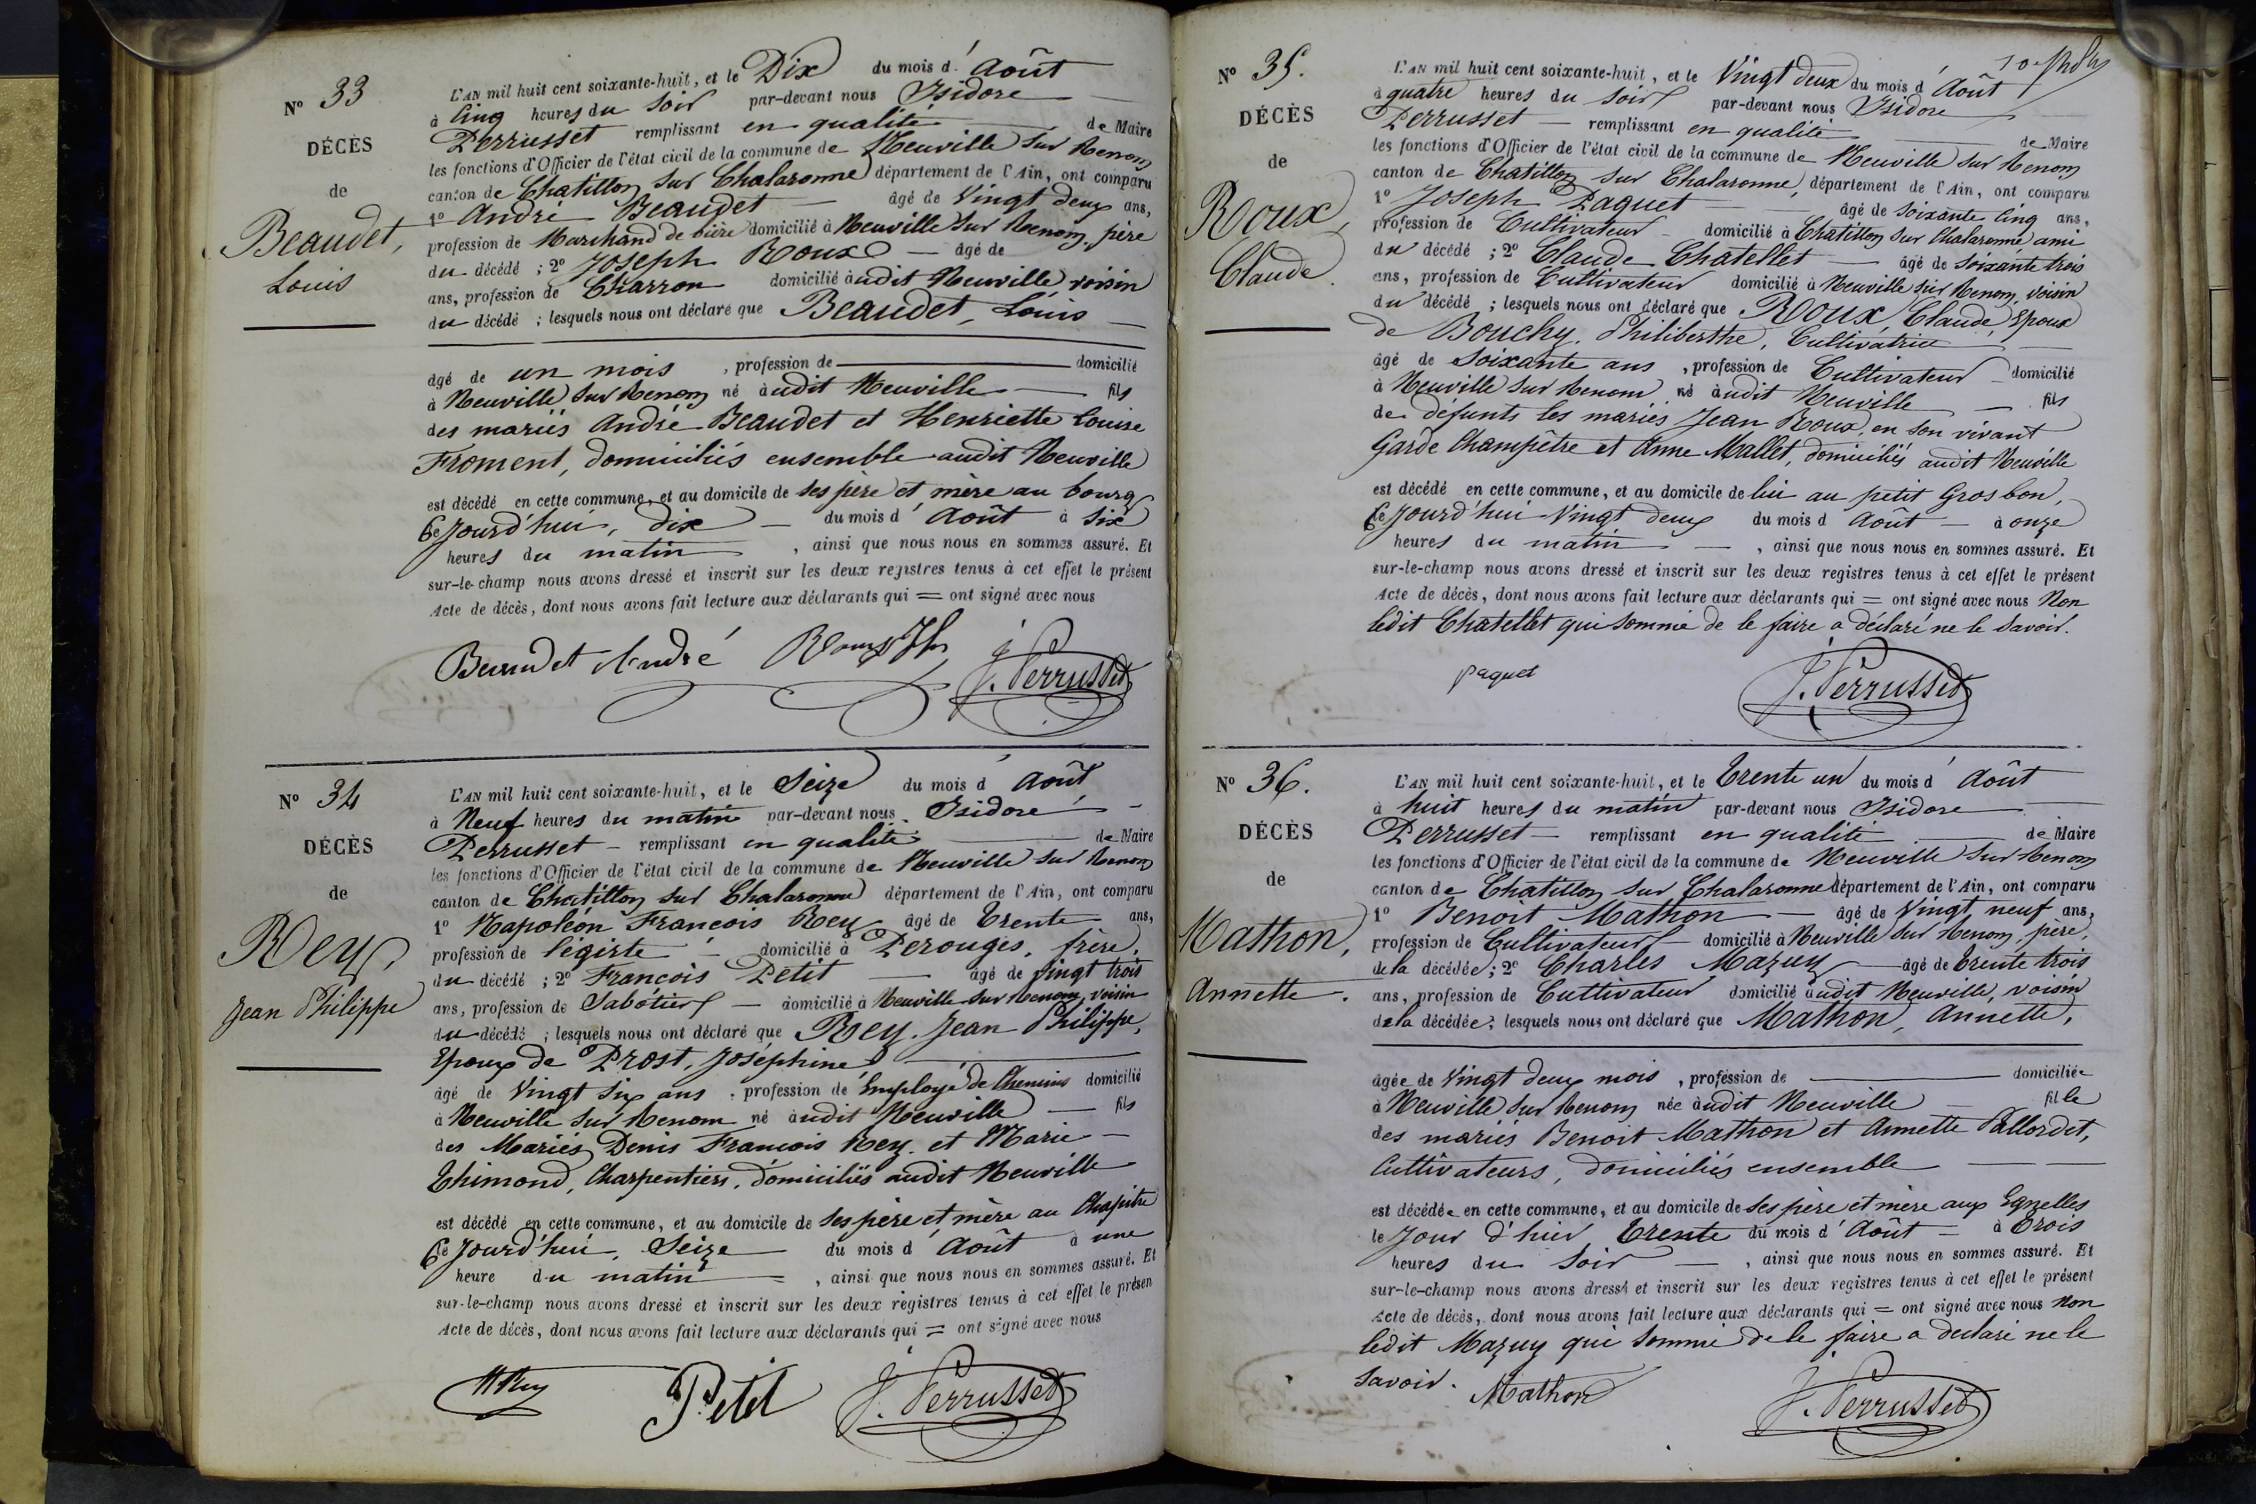 N° 33
DÉCÈS
de
Beaudet,
Louis
L'AN mil huit cent soixante-huit, et le Dix du mois d' Août
à Cinq heures du Soir par-devant nous Isidore
Perrusset remplissant en qualité de Maire
les fonctions d'Officier de l'état civil de la commune de Neuville sur Renom
canton de Chatillon sur Chalaronne département de l'Ain, ont comparu
1° André Beaudet âgé de Vingt deux ans,
profession de Marchand de bière domicilié à Neuville sur Renom, père
du décédé ; 2° Joseph Roux âgé de
ans, profession de Charron domicilié audit Neuville voisin
du décédé ; lesquels nous ont déclaré que Beaudet, Louis
âgé de un mois , profession de domicilié
à Neuville sur Renom né audit Neuville fils
des mariés André Beaudet et Henriette Louise
Froment, domiciliés ensemble audit Neuville
est décédé en cette commune, et au domicile de ses père et mère au bourg
Ce Jourd'hui, dix du mois d' Août à six
heures du matin , ainsi que nous nous en sommes assuré. Et
sur-le-champ nous avons dressé et inscrit sur les deux registres tenus à cet effet le présent
Acte de décès, dont nous avons fait lecture aux déclarants qui = ont signé avec nous
Beaudet André Roux Jh J. Perrusset
N° 34
DÉCÈS
de
Rey,
Jean Philippe
L'AN mil huit cent soixante-huit, et le Seize du mois d' Août
à Neuf heures du matin par-devant nous Isidore
Perrusset – remplissant en qualité de Maire
les fonctions d'Officier de l'état civil de la commune de Neuville sur Renom
canton de Chatillon sur Chalaronne département de l'Ain, ont comparu
1° Napoléon François Rey âgé de Trente ans,
profession de légiste domicilié à Perouges, frère,
du décédé ; 2° François Petit âgé de Vingt trois
ans, profession de Sabotier domicilié à Neuville sur Renom, voisin
du décédé ; lesquels nous ont déclaré que Rey, Jean Philippe,
Epoux de Prost, Joséphine
âgé de Vingt Six ans , profession de Employé de Chemins domicilié
à Neuville sur Renom né audit Neuville fils
des Mariés Denis François Rey et Marie
Thimond, Charpentiers, domiciliés audit Neuville
est décédé en cette commune, et au domicile de ses père et mère au Chapitre
Ce Jourd'hui, Seize du mois d' Août à une
heure du matin = , ainsi que nous nous en sommes assuré. Et
sur-le-champ nous avons dressé et inscrit sur les deux registres tenus à cet effet le présen
Acte de décès, dont nous avons fait lecture aux déclarants qui = ont signé avec nous
NRey Petit J. Perrusset
N° 35.
DÉCÈS
de
Roux,
Claude.
L'AN mil huit cent soixante-huit, et le Vingt deux du mois d' Août
à quatre heures du soir par-devant nous Isidore
Perrusset – remplissant en qualité de Maire
les fonctions d'Officier de l'état civil de la commune de Neuville sur Renom
canton de Chatillon sur Chalaronne, département de l'Ain, ont comparu
1° Joseph Paquet âgé de soixante cinq ans,
profession de Cultivateur domicilié à Chatillon sur Chalaronne ami
du décédé ; 2° Claude Chatellet âgé de soixante trois
ans, profession de Cultivateur domicilié à Neuville sur Renom, voisin
du décédé ; lesquels nous ont déclaré que Roux, Claude, Epoux
de Bouchy, Philiberthe, Cultivatrice
âgé de soixante ans , profession de Cultivateur domicilié
à Neuville sur Renom né audit Neuville fils
de defunts les mariés Jean Roux, en son vivant
Garde Champêtre et Anne Mallet, domiciliés audit Neuville
est décédé en cette commune, et au domicile de lui au petit Gros bon,
Ce Jourd'hui Vingt deux du mois d Août – à onze
heures du matin , ainsi que nous nous en sommes assuré. Et
sur-le-champ nous avons dressé et inscrit sur les deux registres tenus à cet effet le présent
Acte de décès, dont nous avons fait lecture aux déclarants qui = ont signé avec nous Non
ledit Chatellet qui sommé de le faire a déclaré ne le savoir.
paquet J. Perrusset
N° 36.
DÉCÈS
de
Mathon,
Annette.
L'AN mil huit cent soixante-huit, et le Trente un du mois d' Août
à huit heures du matin par-devant nous Isidore
Perrusset – remplissant en qualité de Maire
les fonctions d'Officier de l'état civil de la commune de Neuville sur Renom
canton de Chatillon sur Chalaronne département de l'Ain, ont comparu
1° Benoit Mathon âgé de Vingt neuf ans,
profession de Cultivateur domicilié à Neuville sur Renom, père
de la décédée ; 2° Charles Mazuy âgé de Trente trois
ans, profession de Cultivateur domicilié audit Neuville, voisin
de la décédée ; lesquels nous ont déclaré que Mathon, Annette,
âgée de Vingt deux mois , profession de domiciliée
à Neuville sur Renom née audit Neuville fille
des mariés Benoit Mathon et Annette Pallordet,
Cultivateurs, domiciliés ensemble
est décédée en cette commune, et au domicile de ses père et mère aux Egrelles
le Jour d'hier Trente du mois d' Août = à Trois
heures du Soir , ainsi que nous nous en sommes assuré. Et
sur-le-champ nous avons dressé et inscrit sur les deux registres tenus à cet effet le présent
Acte de décès, dont nous avons fait lecture aux déclarants qui = ont signé avec nous Non
ledit Mazuy qui sommé de le faire a declaré ne le
savoir. Mathon J. Perrusset